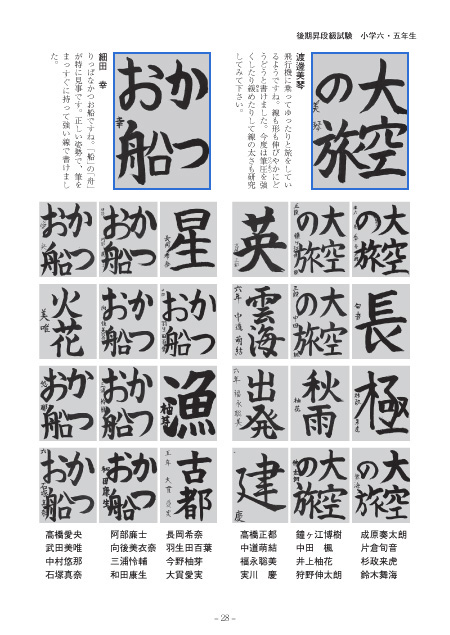 後期昇段級試験　小学六・五年生
大空
の旅
美琴
渡邊美琴
飛行機に乗ってゆったりと旅をしてい
るようですね。線も形も伸びやかにど
うどうと書けました。今度は筆圧を強
くしたり緩めたりして線の太さも研究
してみて下さい。
かつ
お船
幸
細田　幸
りっぱなかつお船ですね。「船」の「舟」
が特に見事です。正しい姿勢で、筆を
まっすぐに持って強い線で書けまし
た。
大空
の旅
大空
の旅
英
長
大空
の旅
雲海
六年 中道萌結
極
秋雨
柚花
出発
六年 福永聡美
大空
の旅
大空
の旅
建
慶
星
長岡希奈
かつ
お船
かつ
お船
かつ
お船
かつ
お船
火花
美唯
漁
柚芽
かつ
お船
かつ
お船
古都
五年 大貫愛実
かつ
お船
和田康生
かつ
お船
成原奏太朗
片倉旬音
杉政来虎
鈴木舞海
鐘ヶ江博樹
中田　楓
井上柚花
狩野伸太朗
高橋正都
中道萌結
福永聡美
実川　慶
長岡希奈
羽生田百葉
今野柚芽
大貫愛実
阿部麻士
向後美衣奈
三浦怜輔
和田康生
高橋愛央
武田美唯
中村悠那
石塚真奈
– 28 –